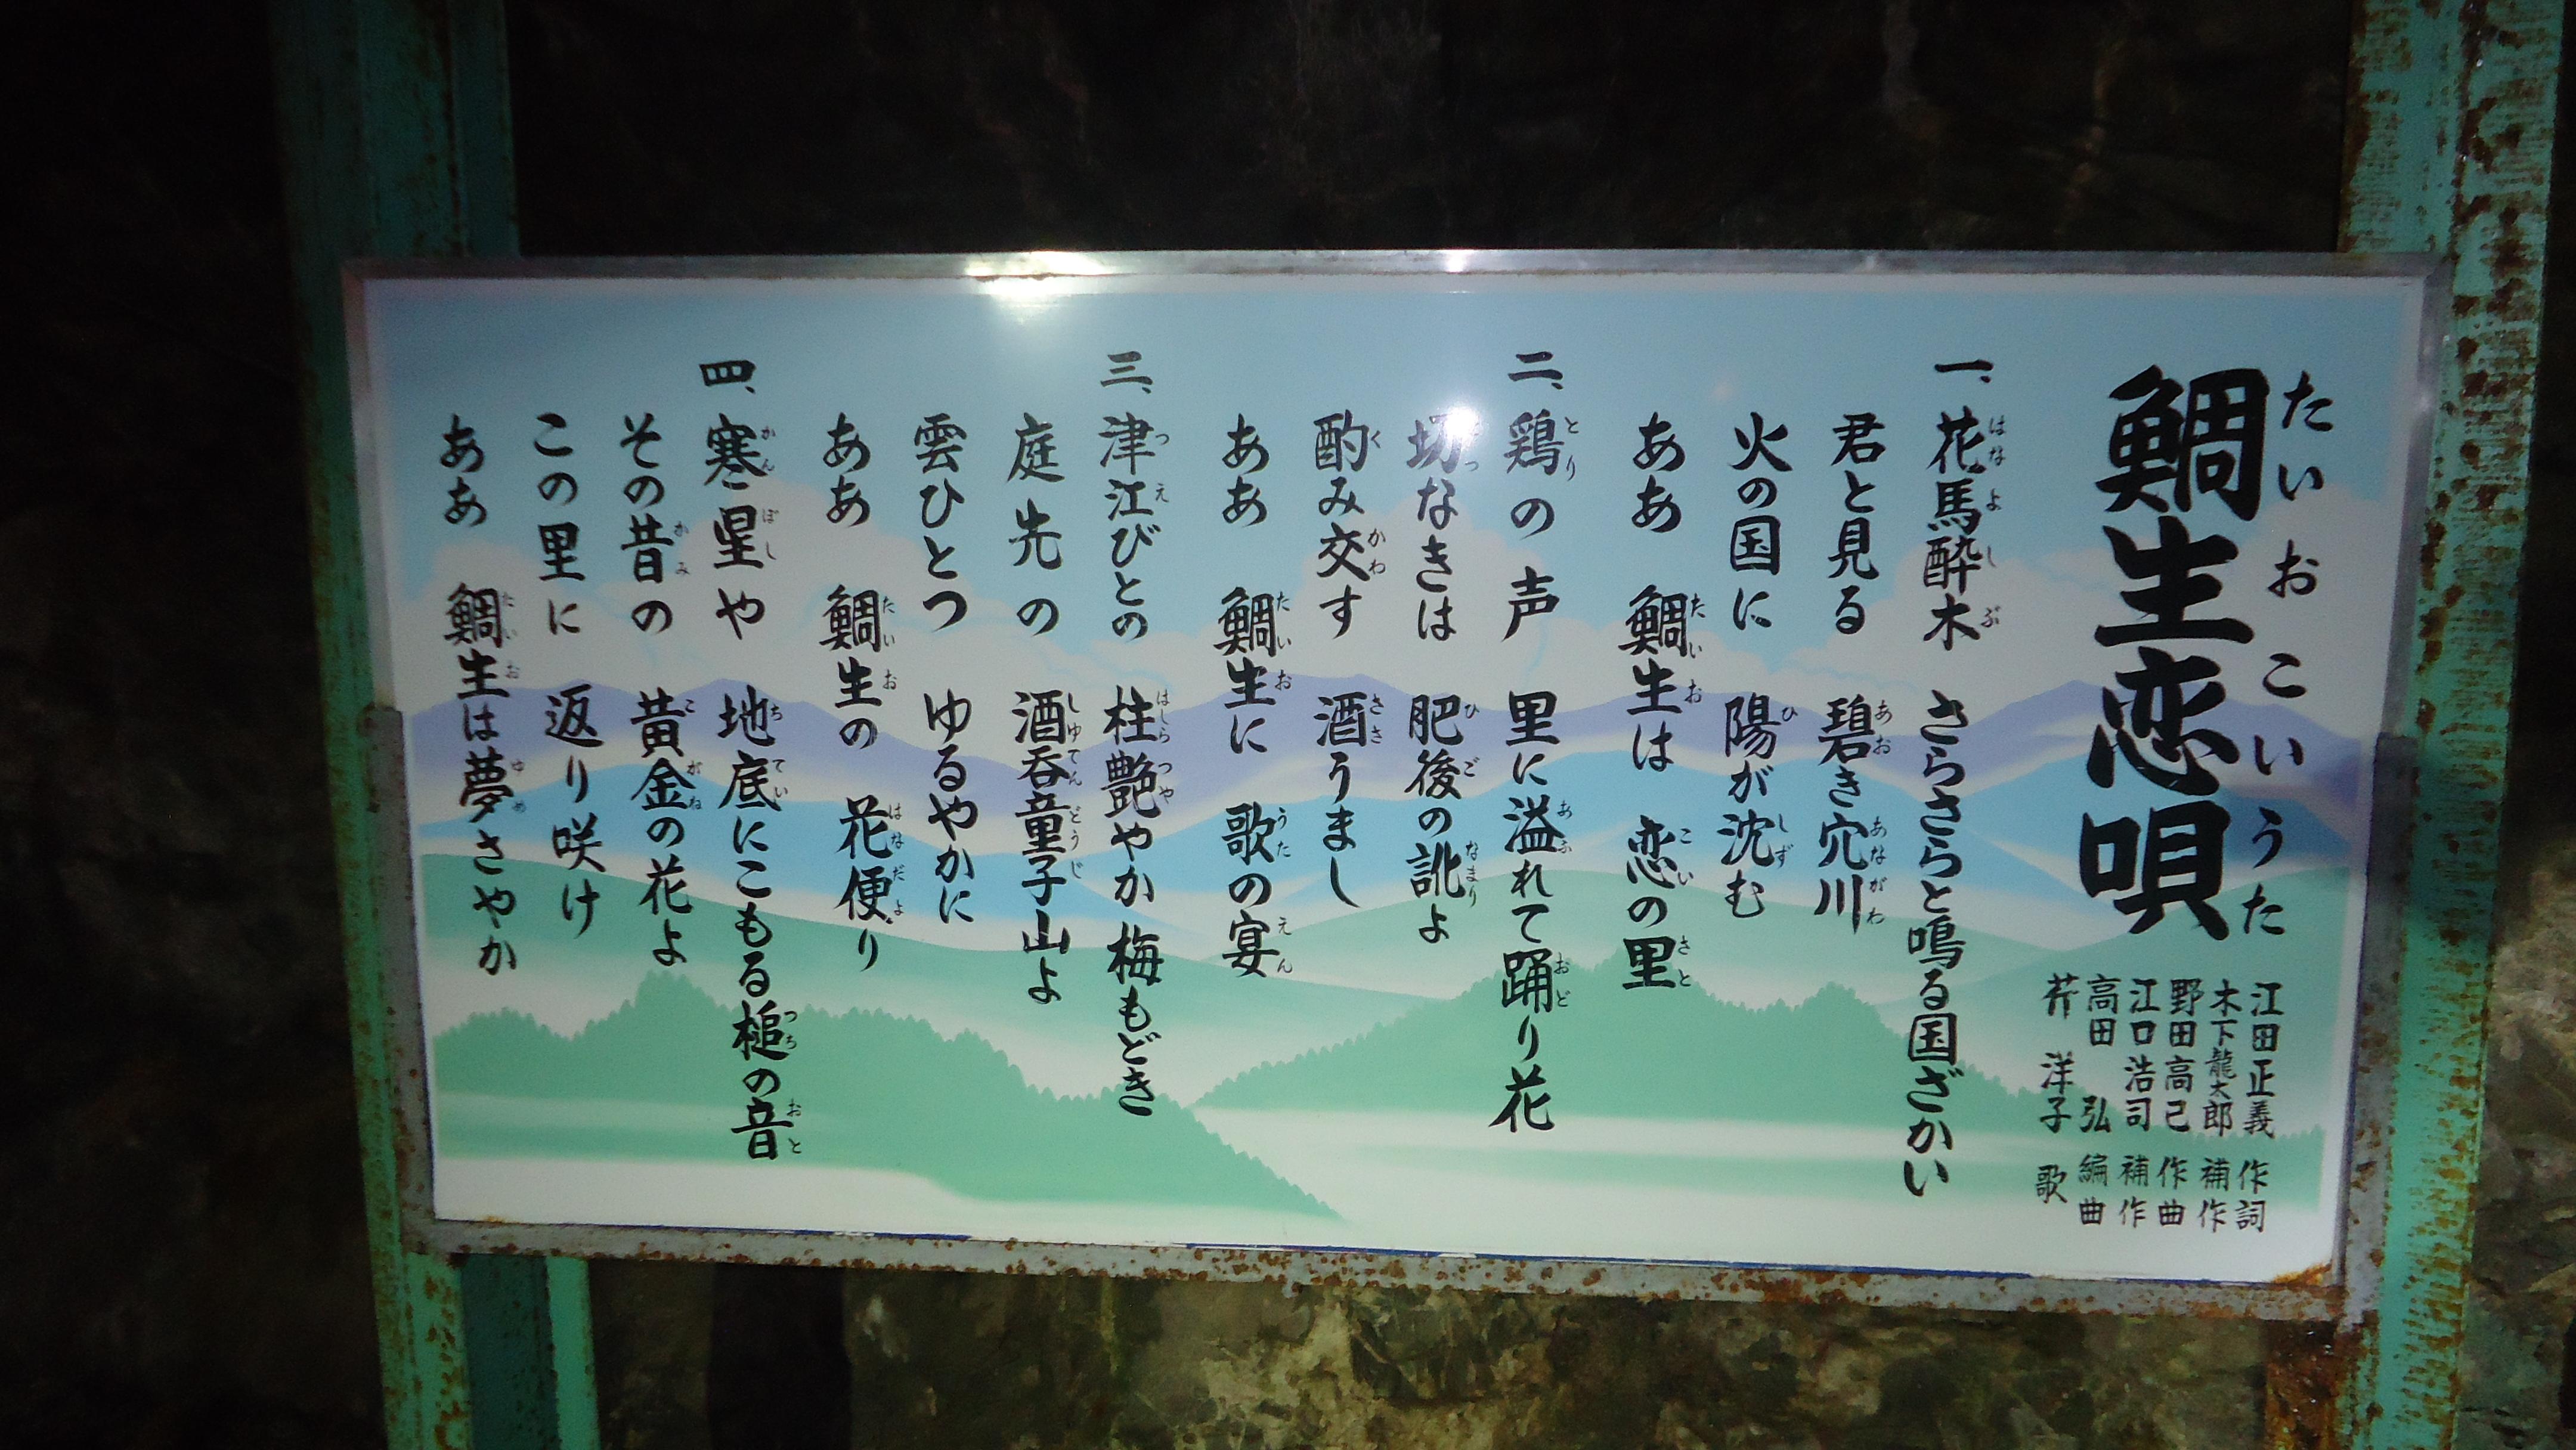 鯛生恋唄
たいおこいうた
江田正義 作詞
木下龍太郎 補作
野田高己 作曲
江口浩司 補作
高田 弘 編曲
芹 洋子 歌
一、花馬酔木 さらさらと鳴る国ざかい
君と見る 碧き穴川
火の国に 陽が沈む
ああ 鯛生は 恋の里
二、鶏の声 里に溢れて踊り花
切なきは 肥後の訛よ
酌み交す 酒うまし
ああ 鯛生に 歌の宴
三、津江びとの 柱艶やか梅もどき
庭先の 酒呑童子山よ
雲ひとつ ゆるやかに
ああ 鯛生の 花便り
四、寒星や 地底にこもる槌の音
その昔の 黄金の花よ
この里に 返り咲け
ああ 鯛生は夢さやか